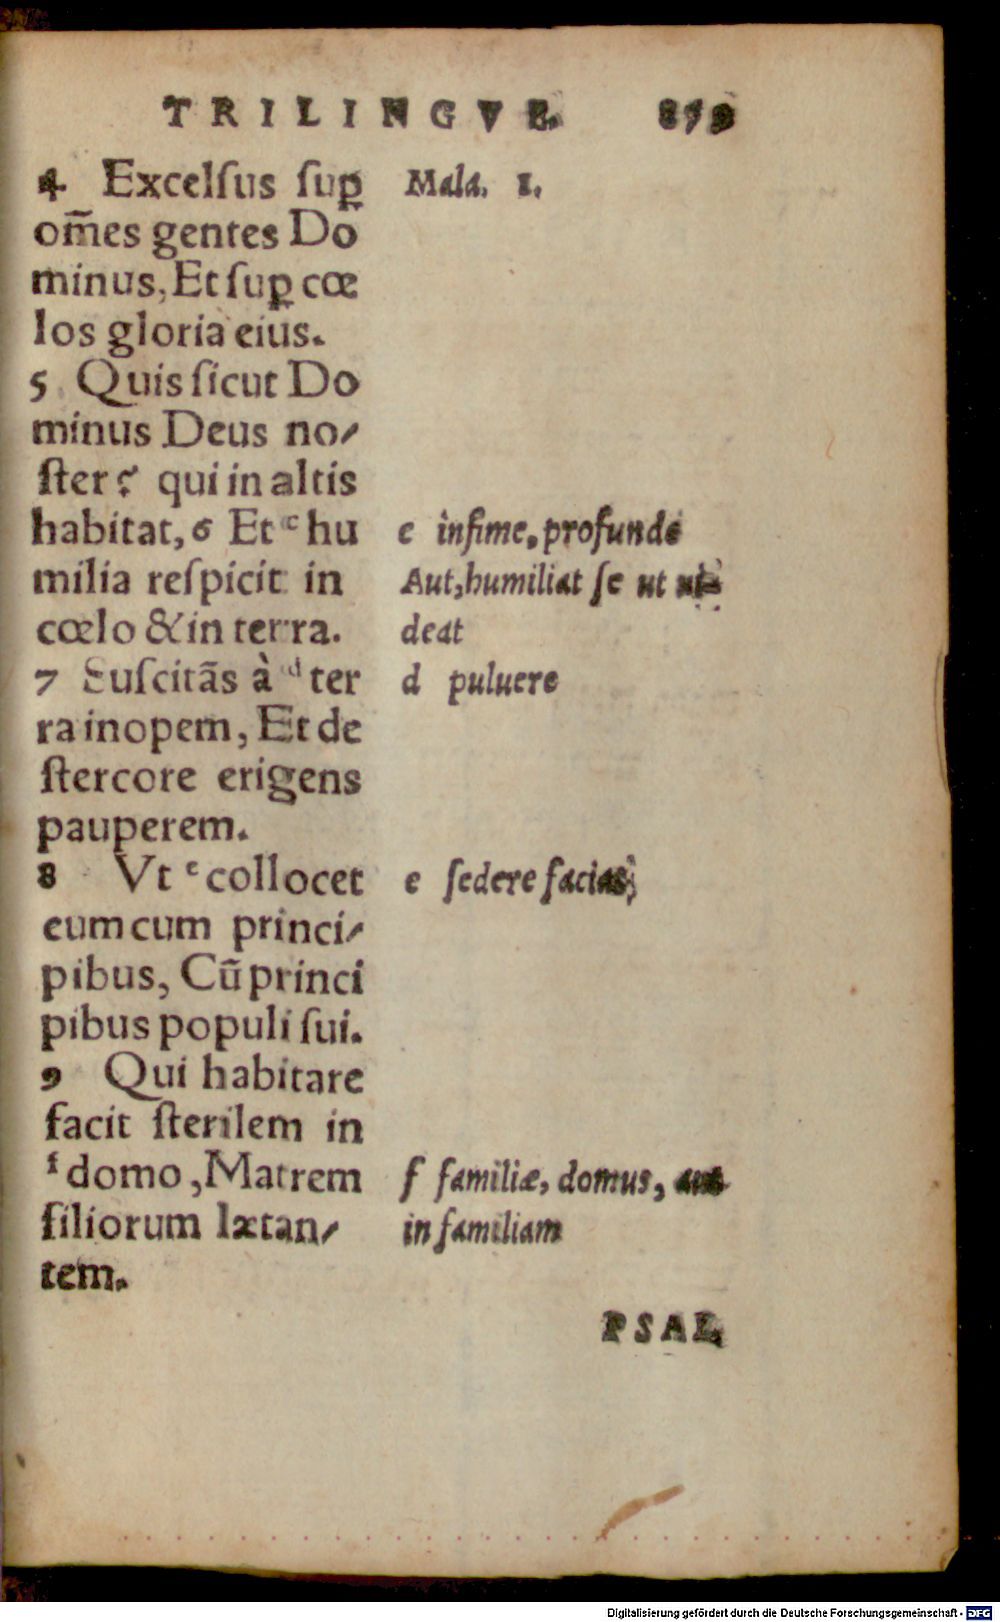 TRILINGVE. 879
4 Excelſus ſuꝑ
om̃es gentes Do
minus, Et ſuꝑ cœ
los gloria eius.
5 Quis ſicut Do
minus Deus no⸗
ſter? qui in altis
habitat, 6 Et ᶜ hu
milia reſpicit in
cœlo & in terra.
7 Suſcitãs à ᵈ ter
ra inopem, Et de
ſtercore erigens
pauperem.
8 Vt ᵉ collocet
eum cum princi⸗
pibus, Cũ princi
pibus populi ſui.
9 Qui habitare
facit ſterilem in
ᶠ domo, Matrem
filiorum lætan⸗
tem.
Mala. 1.
c infime, profunde
Aut, humiliat ſe ut
deat
d puluere
e ſedere facias
f familiæ, domus, aut
in familiam
PSAL.
Digitalisierung gefördert durch die Deutsche Forschungsgemeinschaft - DFG